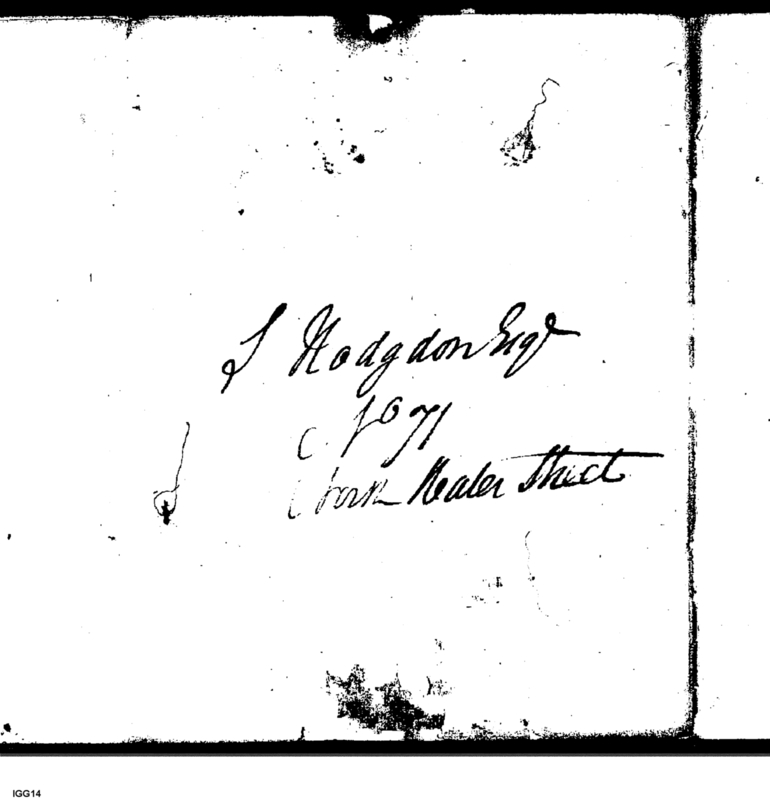 S Hodgdon Esqr
No 71
North Water Street
IGG14